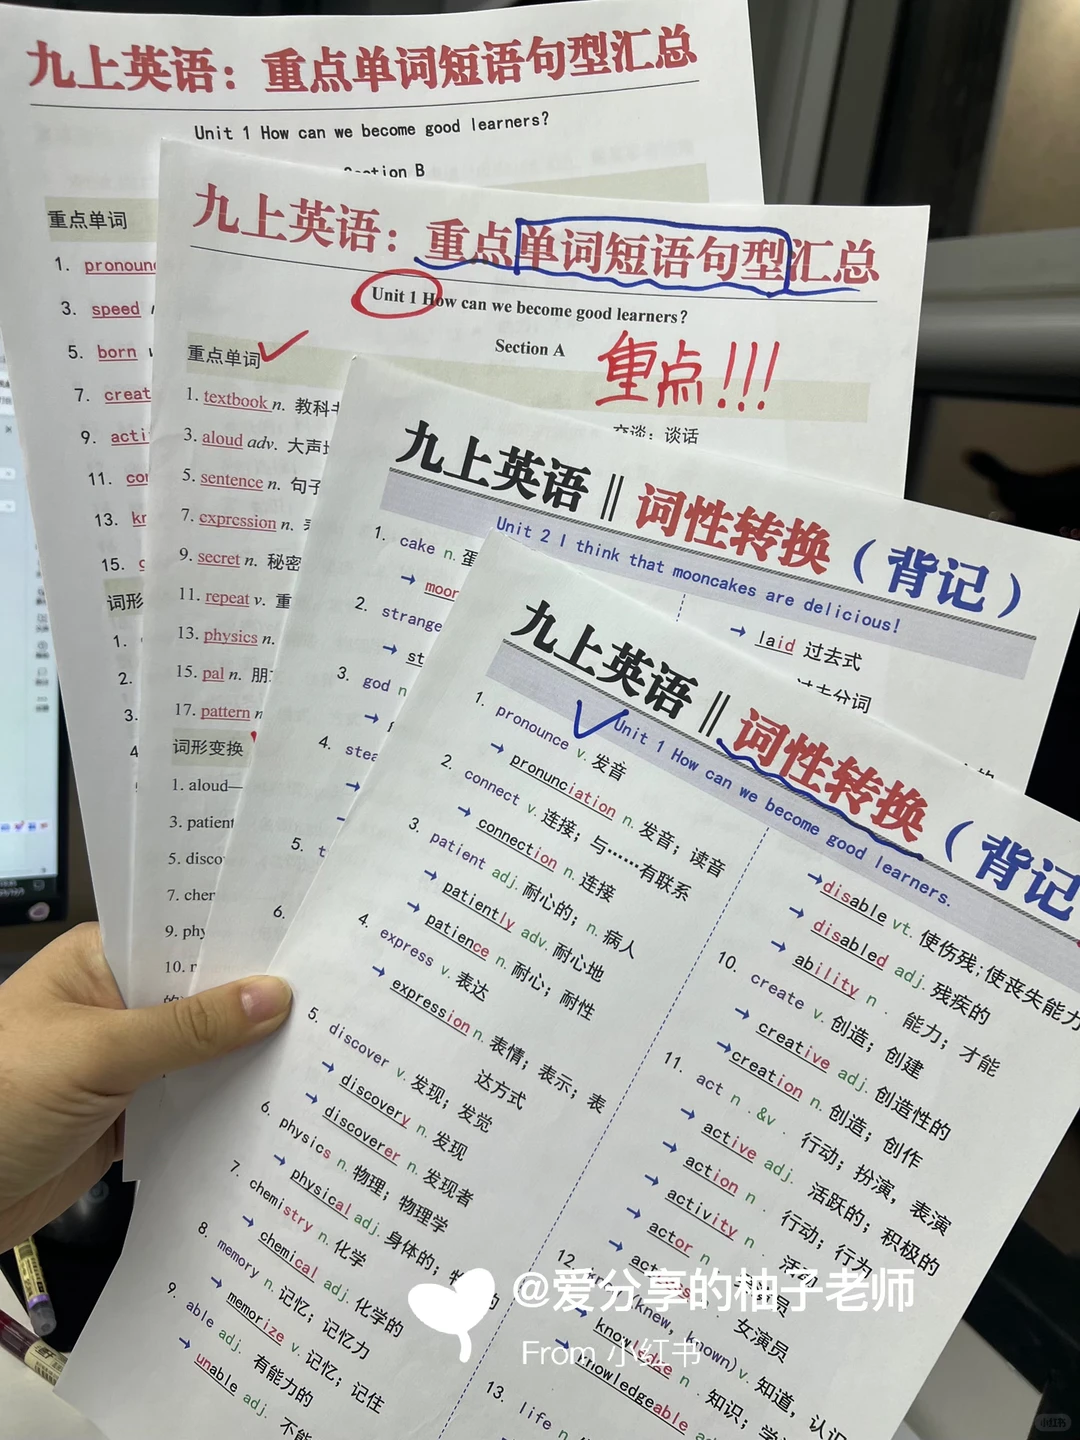 九上英语：重点单词短语句型汇总
Unit 1 How can we become good learners?
Section B
重点单词
1. pronounc
3. speed
5. born
7. creat
9. acti
11. co
13. kn
15.
词形
1.
2.
3.
4
九上英语：重点单词短语句型汇总
Unit 1 How can we become good learners?
Section A
重点!!!
重点单词
1. textbook n. 教科书
交谈；谈话
3. aloud adv. 大声地
5. sentence n. 句子
7. expression n.
9. secret n. 秘密
11. repeat v. 重
13. physics n.
15. pal n. 朋友
17. pattern n
词形变换
1. aloud—
3. patient
5. disco
7. cher
9. phy
10.
九上英语 || 词性转换（背记）
Unit 2 I think that mooncakes are delicious!
1. cake n. 蛋
→ moor
2. strange
→ st
3. god n
→
4. stea
→
5. t
6.
→ laid 过去式
过去分词
九上英语 || 词性转换（背记
Unit 1 How can we become good learners.
1. pronounce v. 发音
→ pronunciation n. 发音；读音
2. connect v. 连接；与……有联系
→ connection n. 连接
3. patient adj. 耐心的；n. 病人
→ patiently adv. 耐心地
→ patience n. 耐心；耐性
4. express v. 表达
→ expression n. 表情；表示；表
达方式
5. discover v. 发现；发觉
→ discovery n. 发现
→ discoverer n. 发现者
6. physics n. 物理；物理学
→ physical adj. 身体的；物
的
7. chemistry n. 化学
→ chemical adj. 化学的
8. memory n. 记忆；记忆力
→ memorize v. 记忆；记住
9. able adj. 有能力的
→ unable adj. 不能
→disable vt. 使伤残；使丧失能力
→ disabled adj. 残疾的
→ ability n. 能力；才能
10. create v. 创造；创建
→ creative adj. 创造性的
→creation n. 创造；创作
11. act n.&v. 行动；扮演，表演
→ active adj. 活跃的；积极的
→ action n. 行动；行为
→ activity n. 活动
→ actor n. 男演员
→ actress n. 女演员
12. know (knew, known) v. 知道，认识
→ knowledge n. 知识；学
→ knowledgeable ad
13. life n.
@爱分享的柚子老师
From 小红书
小红书